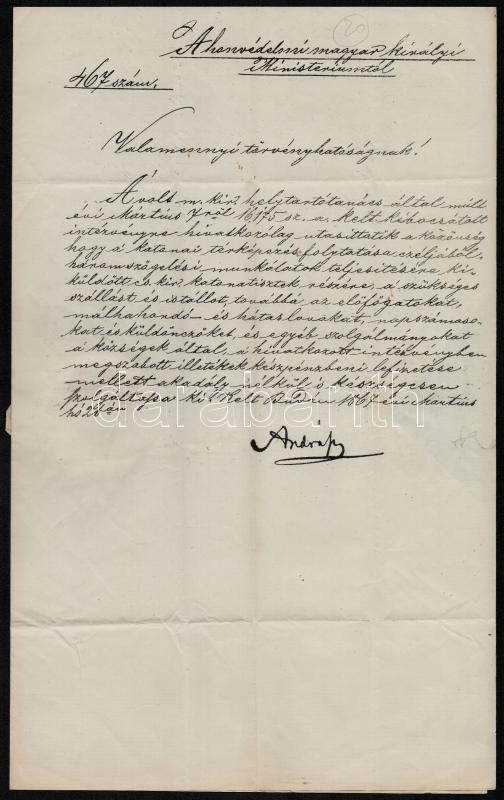 20
A honvédelmi magyar királyi
Ministeriumtól
467 szám.
Valamennyi törvényhatóságnak!
A volt m. kir. helytartótanács által múlt
évi Március 7ről 16175 sz. a. kelt kibocsátott
intézvényre hivatkozólag utasíttatik a közönség
hogy a katonai térképezés folytatása czéljából
háromszögelési munkálatok teljesitésére ki-
küldött cs. kir. katonatisztek részére, a szükséges
szállást és istállót, továbbá az előfogatokat,
málhahordó- és hátaslovakat, napszámoso-
kat és küldönczöket, és egyéb szolgálmányokat
a községek által, a hivatkozott intézvényben
megszabott illetékek készpénzbeni lefizetése
mellett akadály nélkül s készségesen
szolgáltassa ki. Kelt Budán 1867 évi Martius
hó 28án
Andrássy
darabanth